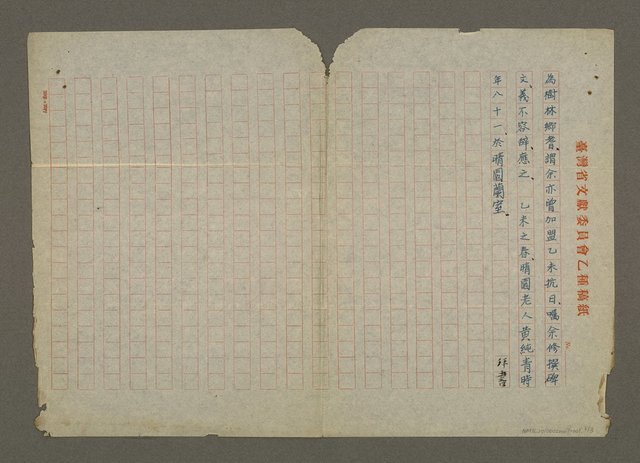 臺灣省文獻委員會乙種稿紙
為樹林鄉耆、謂余亦曾加盟乙未抗日、囑余修撰碑
文、義不容辭、應之、乙未之春、晴園老人黃純青時
年八十一、於晴園蘭室。 拜書